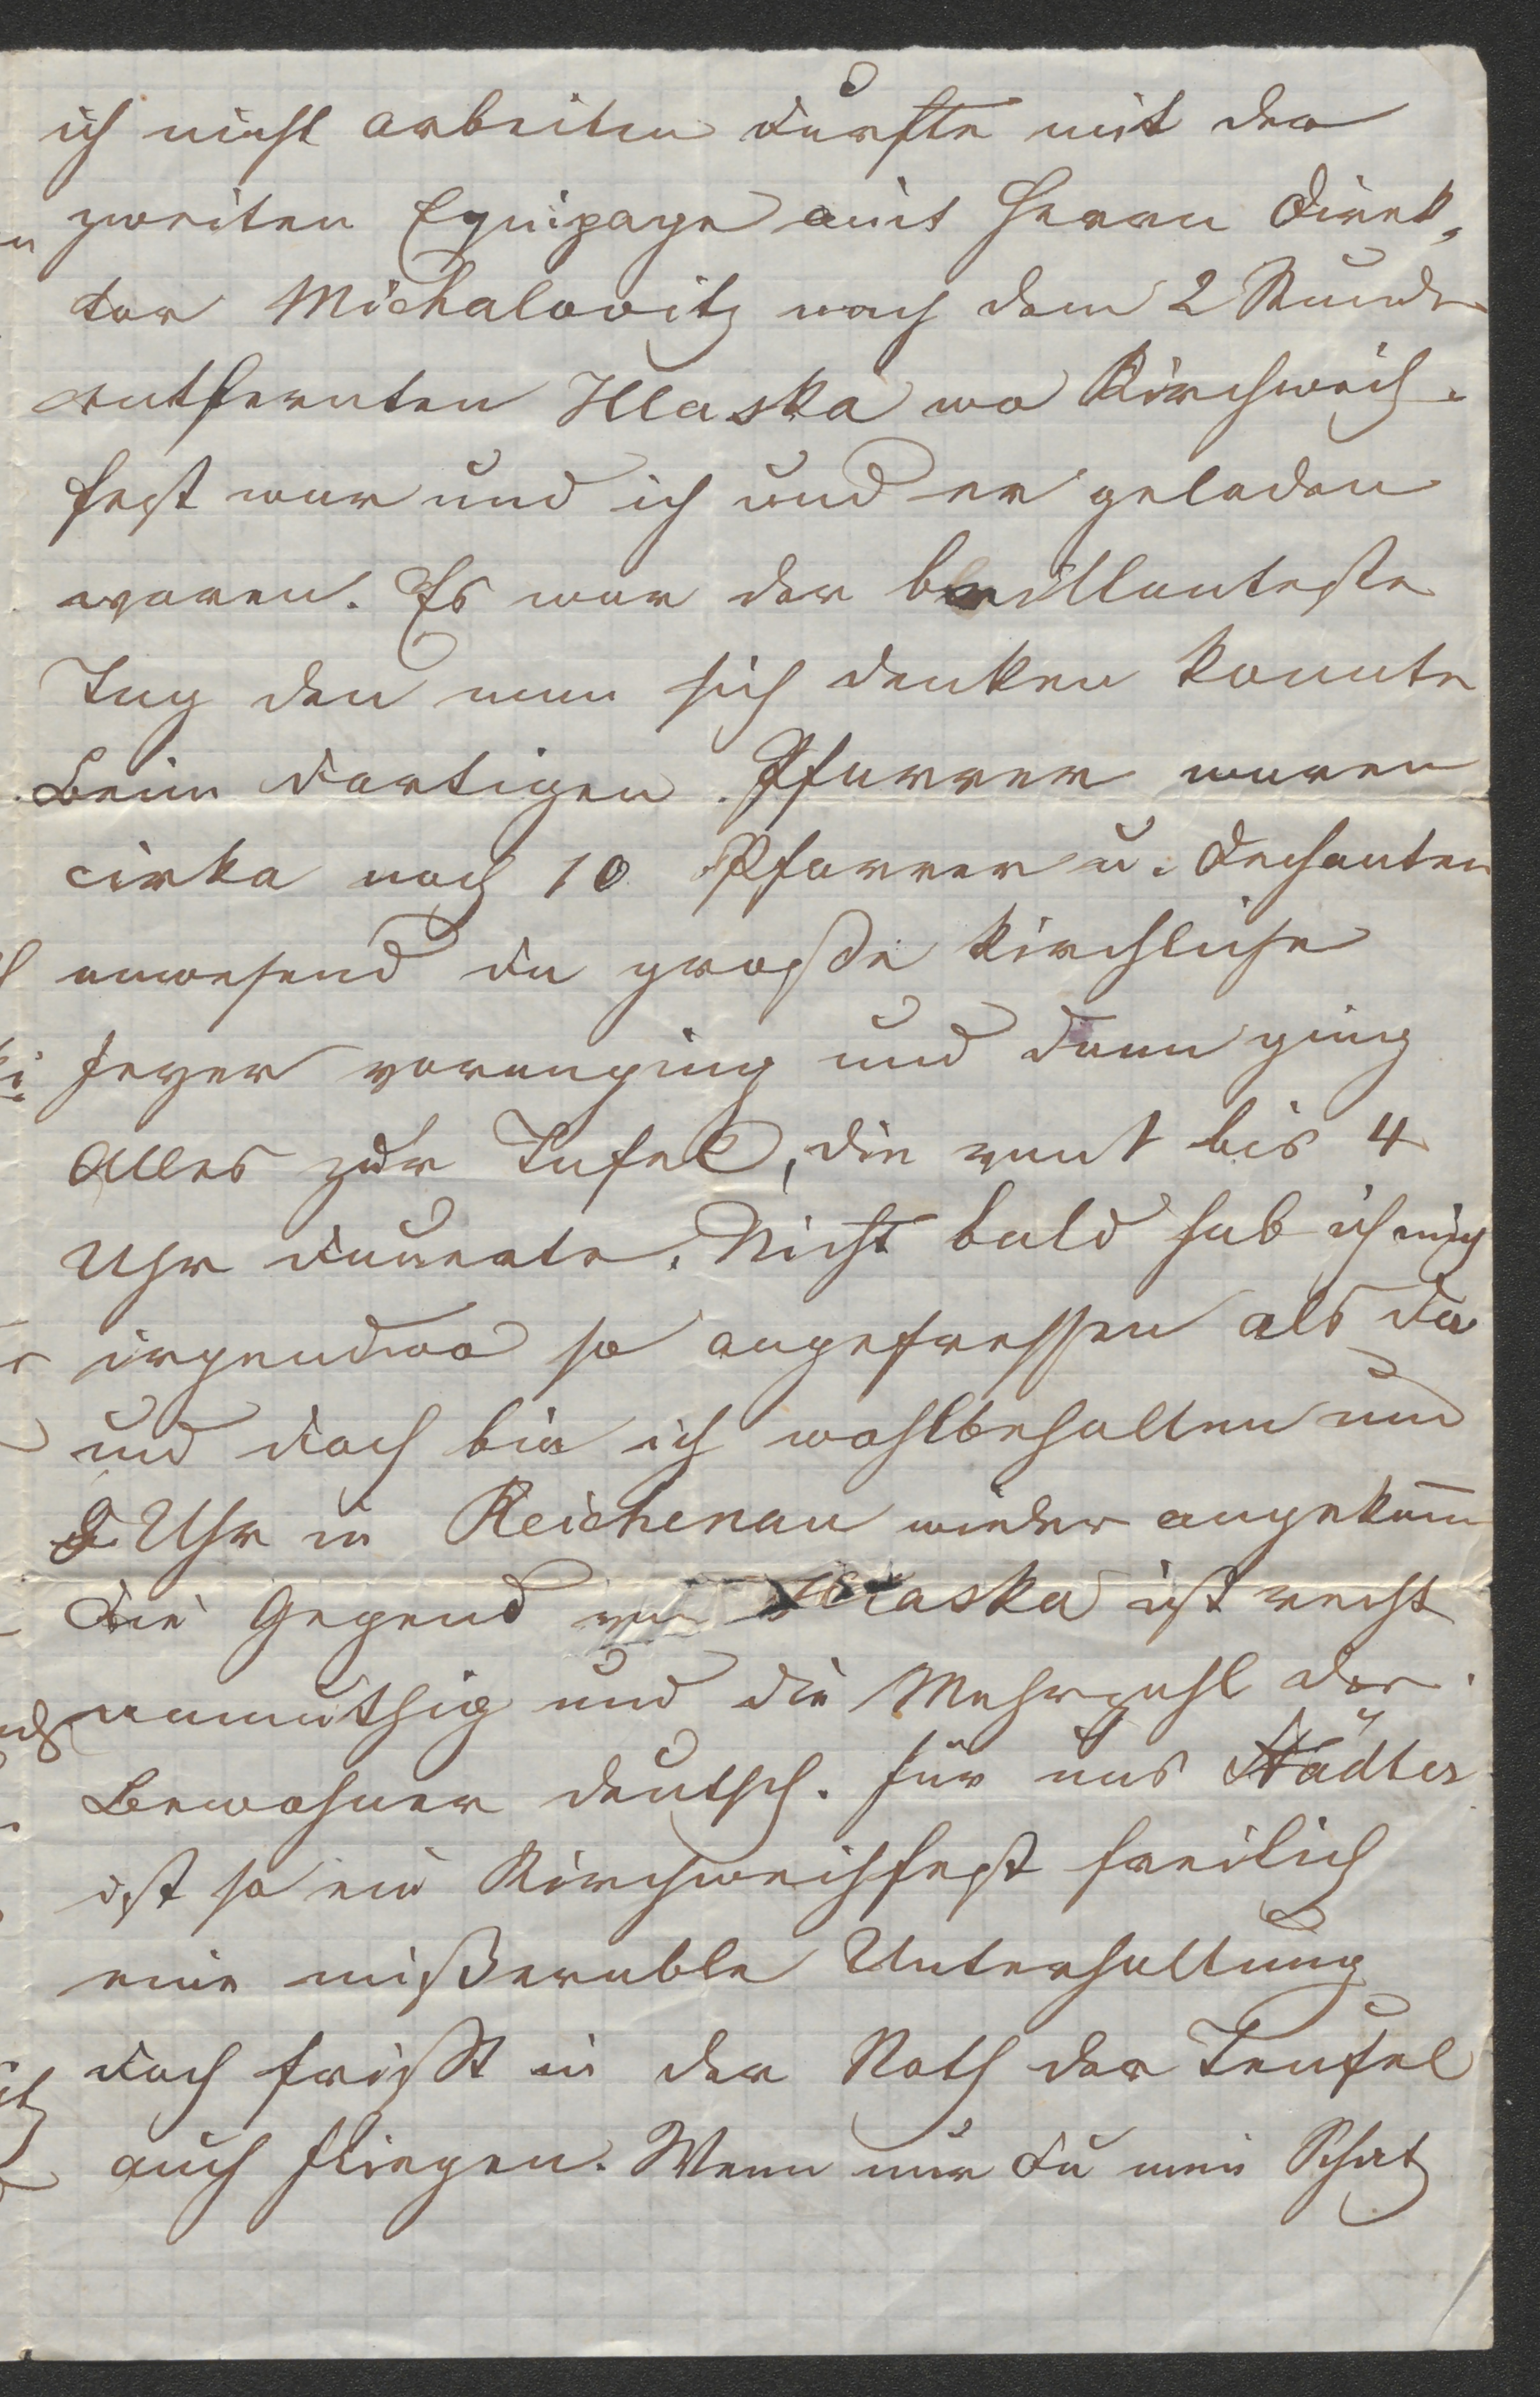 ich nicht arbeiten durfte mit der
zweiten Equipage mit Herrn Direk„
tor Michalovitz nach dem 2 Stunde
entfernten Hlaska wo Kirchweih„
fest war und ich und er geladen
waren. Es war der brillanteste
Tag den man sich denken konnte
Beim dortigen Pfarrer waren
cirka noch 10 Pfarrer u. Dechanten
anwesend da große kirchliche
Feyer voranging und dann ging
Alles zur Tafel, die von 1 bis 4
Uhr dauerte. Nicht bald hab ich mich
irgendwo so angefressen als da
und doch bin ich wohlbehalten um
8 Uhr in Reichenau wieder angekom̅
Die Gegend von Hlaska ist recht
anmuthig und die Mehrzahl der
Bewohner deutsch. Für uns Städter
ist so ein Kirchweihfest freilich
eine mißerable Unterhaltung
doch frißt in der Noth der Teufel
auch Fliegen. Wenn nur Du mein Schatz